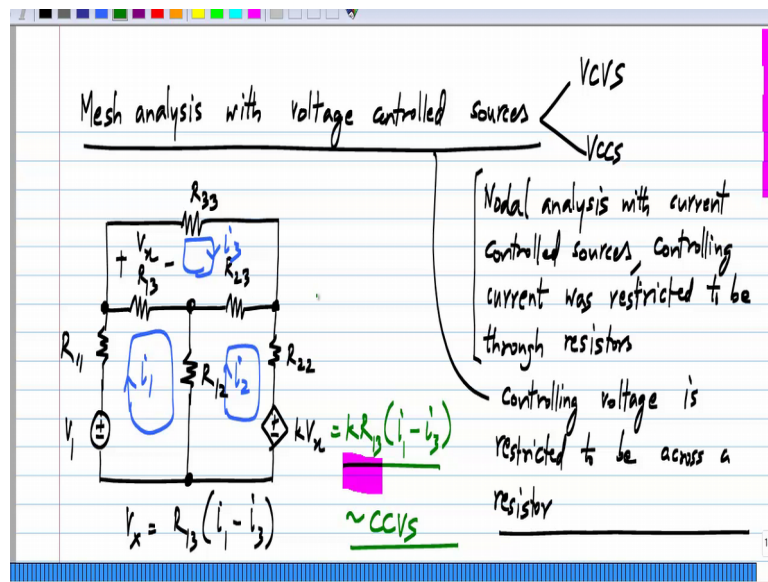 Mesh analysis with voltage controlled sources
VCVS
VCCS
Nodal analysis with current
controlled sources, controlling
current was restricted to be
through resistors
Controlling voltage is
restricted to be across a
resistor
R33
+ Vx -
i3
R13
R23
R11
i1
R12
i2
R22
V1
±
±
kVx = kR13(i1-i3)
Vx = R13(i1-i3)
~CCVS